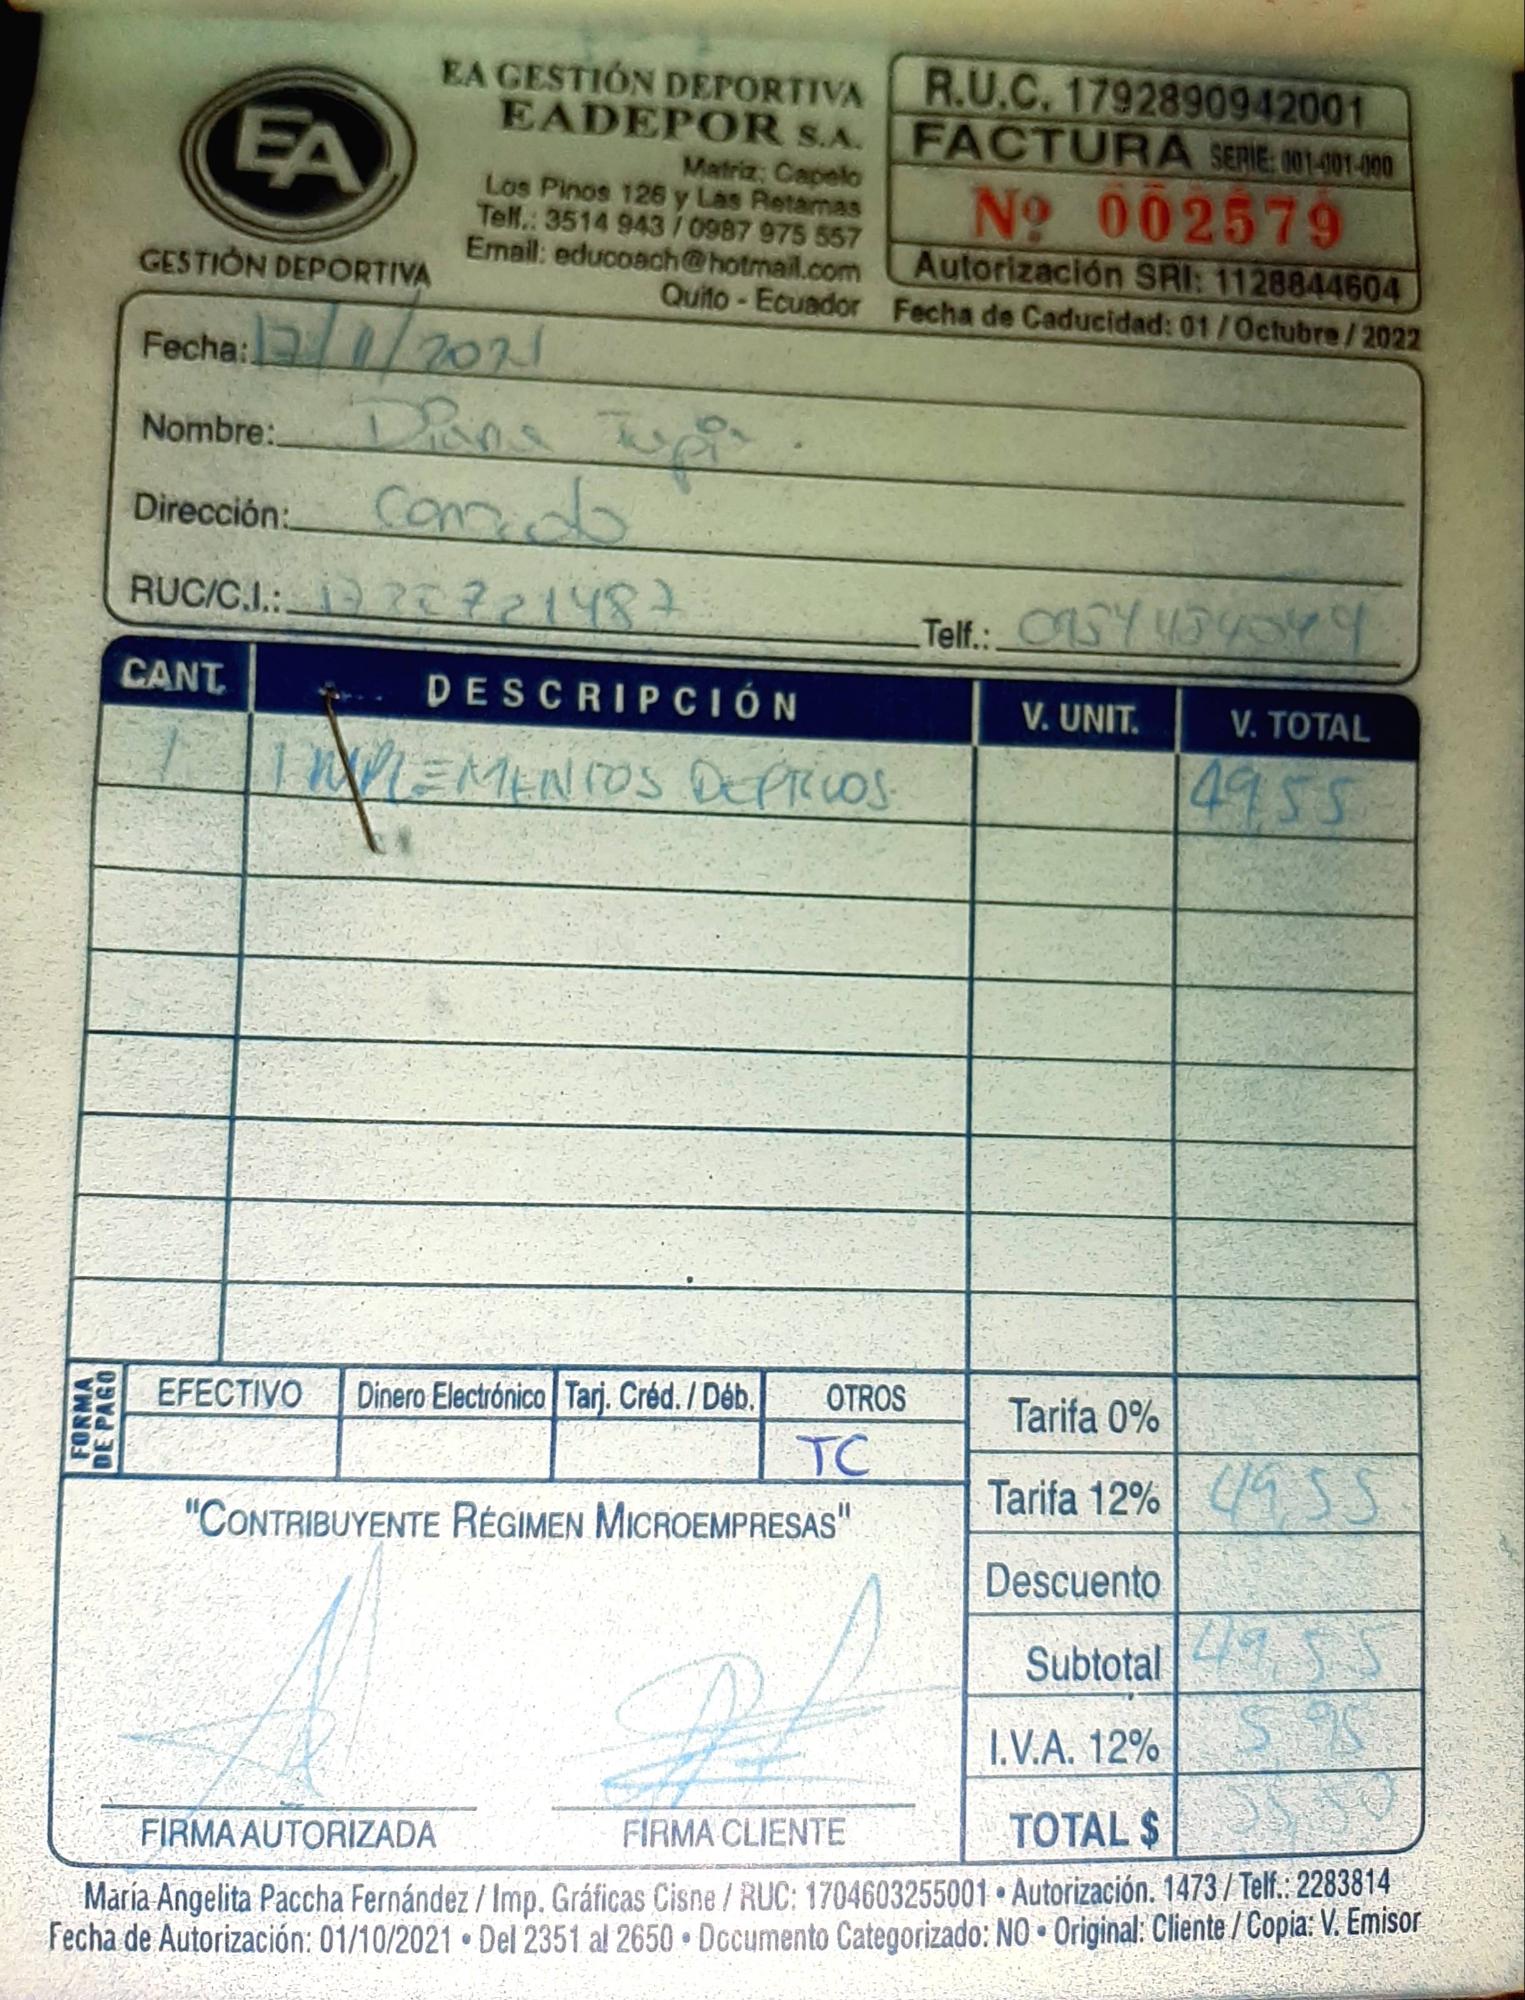 EA
GESTIÓN DEPORTIVA
EA GESTIÓN DEPORTIVA
EADEPOR S.A.
Matriz: Capelo
Los Pinos 126 y Las Retamas
Telf.: 3514 943 / 0987 975 557
Email: educoach@hotmail.com
Quito - Ecuador
R.U.C. 1792890942001
FACTURA SERIE: 001-001-000
Nº 002579
Autorización SRI: 1128844604
Fecha de Caducidad: 01 / Octubre / 2022
Fecha: 17/11/2021
Nombre: Diana
Dirección:
RUC/C.I.:
Telf.:
CANT. DESCRIPCIÓN V. UNIT. V. TOTAL
1 IMPLEMENTOS 49,55
FORMA DE PAGO
EFECTIVO Dinero Electrónico Tarj. Créd. / Déb. OTROS
TC
Tarifa 0%
Tarifa 12% 49,55
Descuento
Subtotal 49,55
I.V.A. 12% 5,95
TOTAL $ 55,50
"CONTRIBUYENTE RÉGIMEN MICROEMPRESAS"
FIRMA AUTORIZADA FIRMA CLIENTE
María Angelita Paccha Fernández / Imp. Gráficas Cisne / RUC: 1704603255001 • Autorización. 1473 / Telf.: 2283814
Fecha de Autorización: 01/10/2021 • Del 2351 al 2650 • Documento Categorizado: NO • Original: Cliente / Copia: V. Emisor